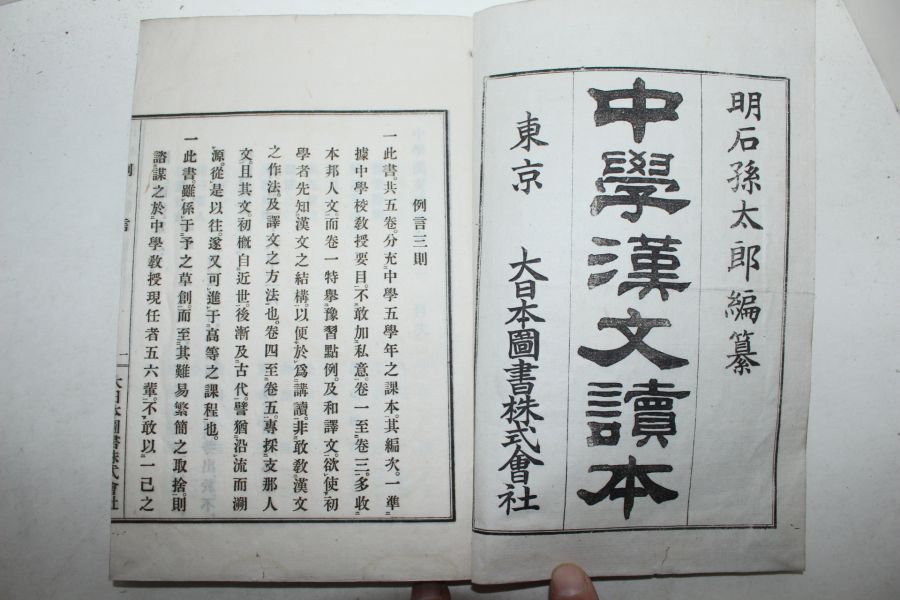 明石孫太郎編纂
中學漢文讀本
東京 大日本圖書株式會社
例言三則
一此書。共五卷。分充中學五學年之課本。其編次。一準
據中學校教授要目。不敢加私意。卷一至卷三。多收
本邦人文。而卷一特擧豫習點例。及和譯文。欲使初
學者先知漢文之結構。以便於爲講讀。非敢教漢文
之作法。及譯文之方法也。卷四至卷五。專採支那人
文。且其文。初概自近世。後漸及古代。譬猶沿流而溯
源。從是以往。遂又可進于高等之課程也。
一此書。雖係于予之草創。而至其難易繁簡之取捨。則
諮謀之於中學教授現任者五六輩。不敢以一己之
例言
一
大日本圖書株式會社